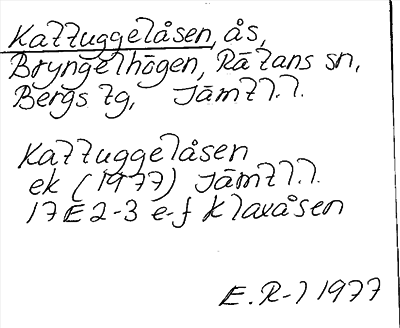 Kattuggelåsen, ås,
Bryngelhögen, Rätans sn,
Bergs tg, Jämtl.l.
Kattuggelåsen
ek (1977) Jämtl.l.
17E 2-3 e-f Klaxåsen
E.R-l 1977